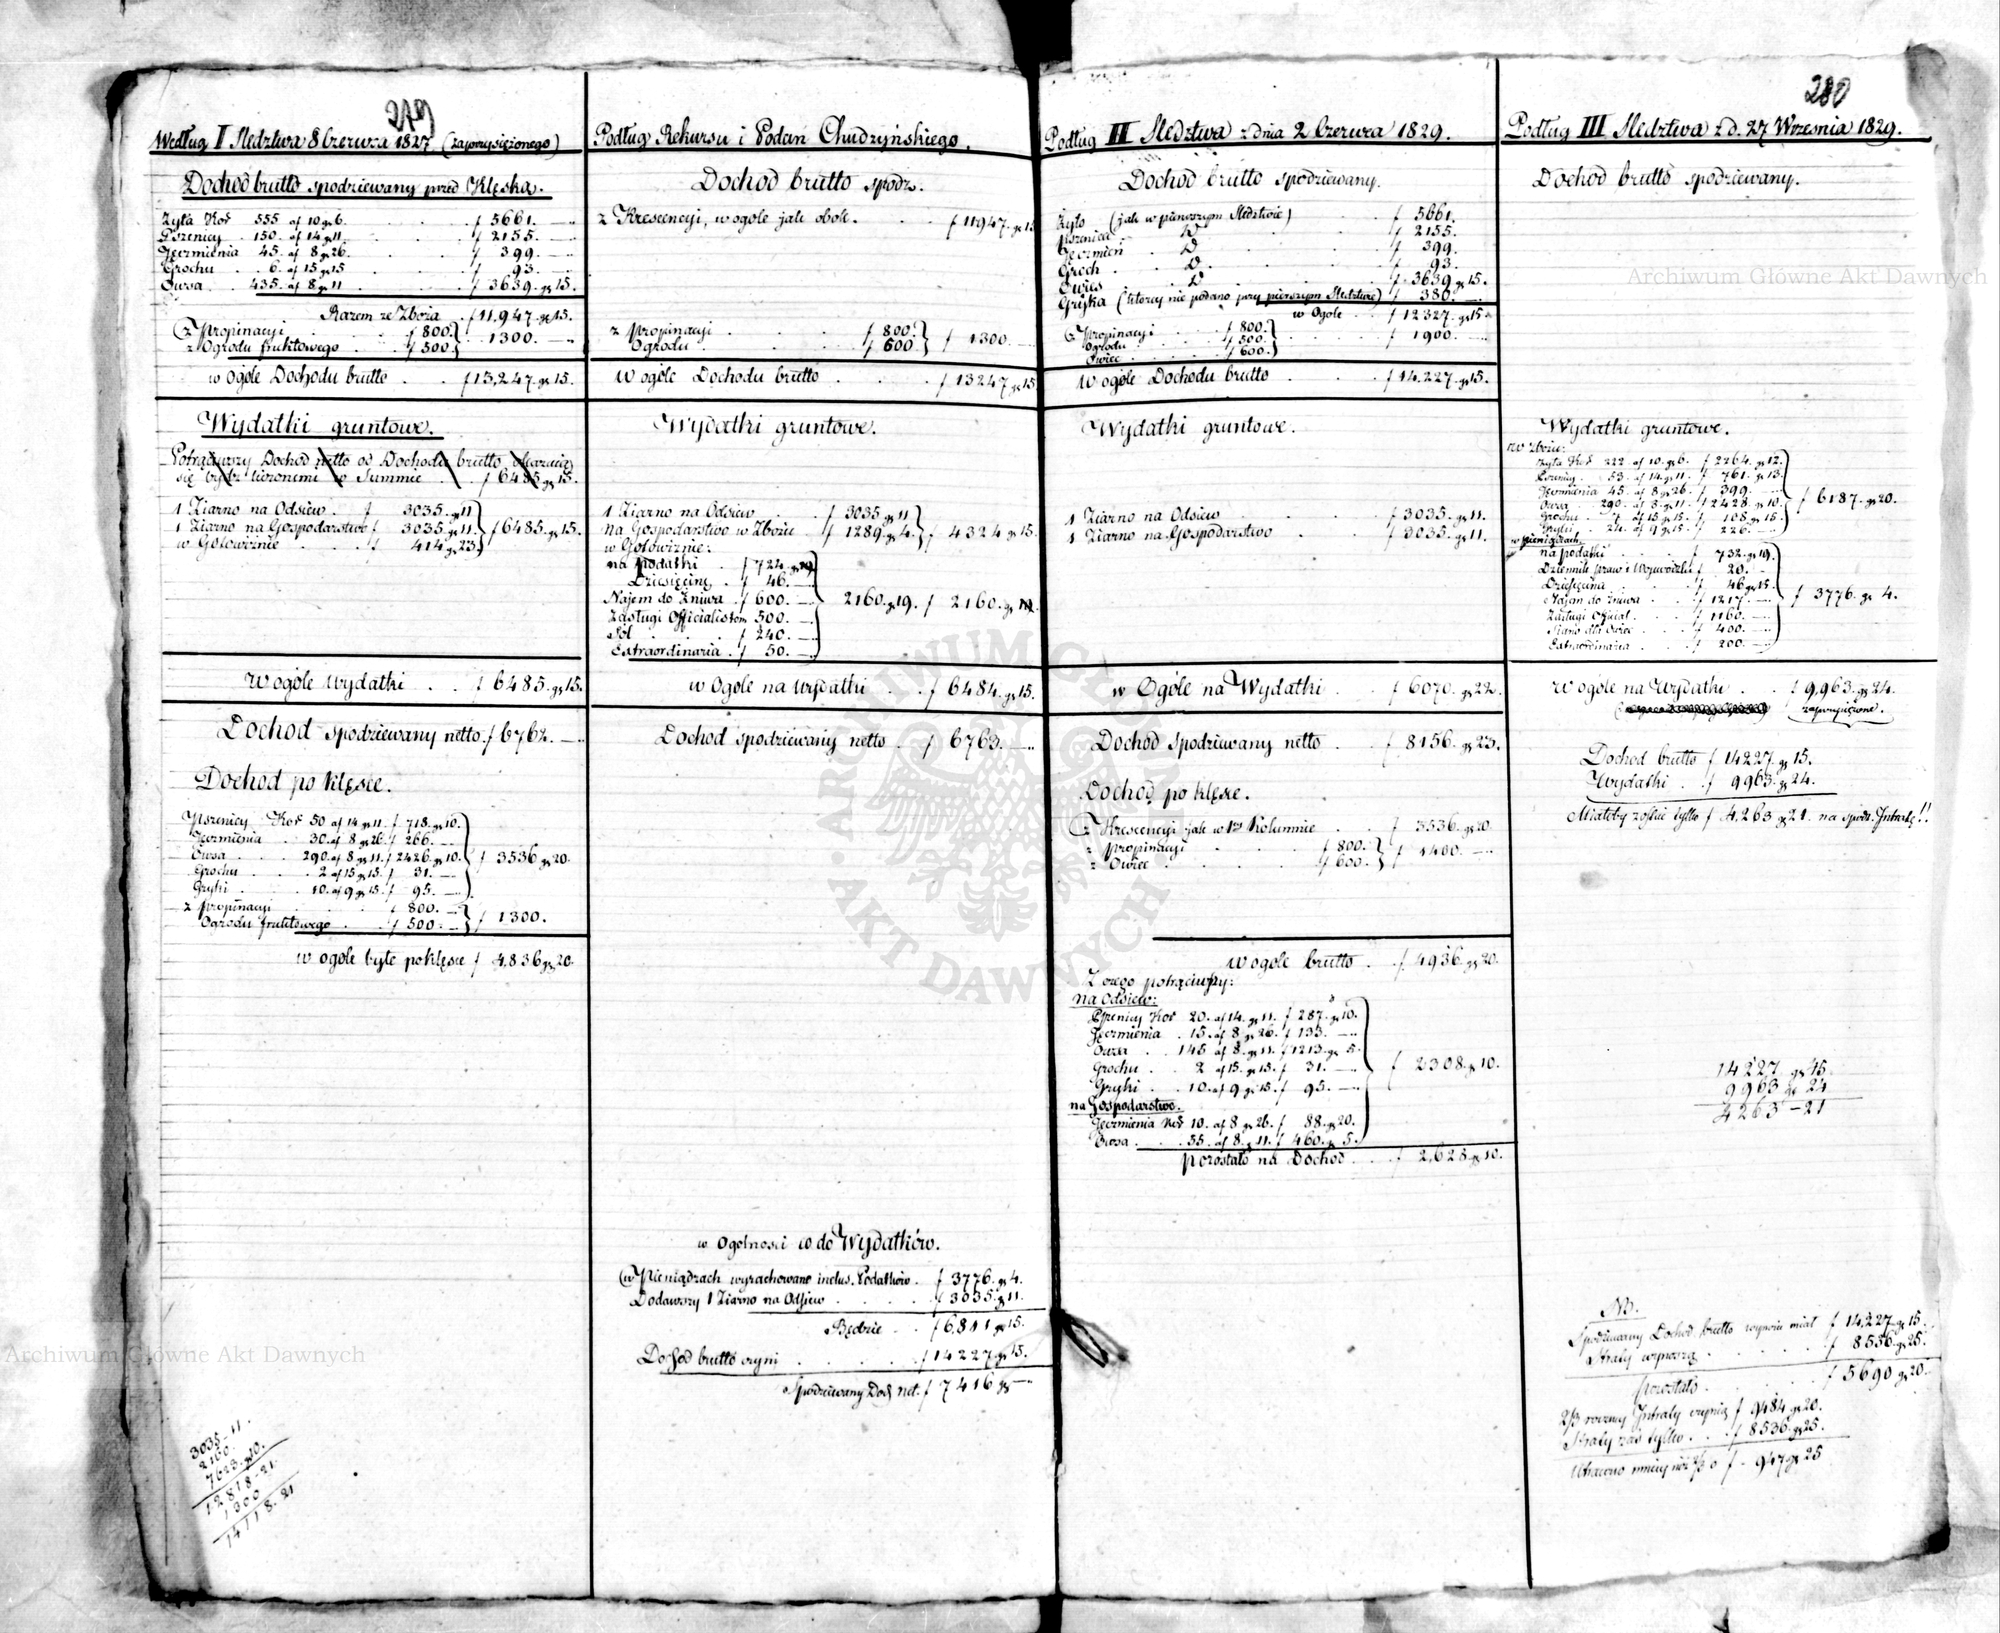 279
Według I Śledztwa 8 Czerwca 1827 (zaprzysiężonego)
Dochod brutto spodziewany przed Klęską.
Żyta Koř 555 af 10 gr 6. f 5661.
Pszenicy 150. af 14 gr 11. f 2155.
Jęczmienia 45. af 8 gr 26. f 399.
Grochu 6. af 15 gr 15 f 93.
Owsa 435. af 8 gr 11 f 3639. gr 15.
Razem ze Zboża f 11,947. gr 15.
Z Propinacyi f 800.
z Ogrodu fruktowego f 500. 1300.
w Ogóle Dochodu brutto f 13,247. gr 15.
Wydatki gruntowe.
Potrąciwszy Dochod netto od Dochodu brutto
się liczonemi w Summie f 6485 gr 15.
1 Ziarno na Odsiew f 3035. gr 11
1 Ziarno na Gospodarstwo f 3035. gr 11. f 6485. gr 15.
w Gotowiznie f 414. gr 23.
W ogóle wydatki f 6485. gr 15.
Dochod spodziewany netto f 6762.
Dochod po klęsce.
Pszenicy Koř 50 af 14 gr 11. f 718. gr 10.
Jęczmienia 30. af 8 gr 26. f 266.
Owsa 290. af 8 gr 11. f 2426. gr 10. f 3536. gr 20.
Grochu 2 af 15 gr 15. f 31.
Gryki 10. af 9 gr 15. f 95.
z Propinacyi f 800.
Ogrodu fruktowego f 500. f 1300.
w ogóle byłe po klęsce f 4,836 gr 20.
3035-11.
2160.
7623. gr 10.
12818-21.
1300
14118-21
Podług Rekursu i Podań Chudzyńskiego.
Dochod brutto spodz.
z Krescencyi, w ogóle jak obok. f 11947. gr 15
z Propinacyi f 800.
Ogrodu f 500. f 1300.
W ogóle Dochodu brutto f 13247 gr 15
Wydatki gruntowe.
1 Ziarno na Odsiew f 3035 gr 11
na Gospodarstwo w Zbożu f 1289. gr 4. f 4324 gr 15.
w Gotowiznie:
na podatki f 724. gr 19
Dziesięcinę f 46.
Najem do Żniwa f 600. 2160. gr 19. f 2160. gr 19.
Zasługi Officialistom 500.
Sól f 240.
Extraordinaria f 50.
w Ogóle na wydatki f 6484. gr 15.
Dochod spodziewany netto f 6763.
w Ogolnosci co do Wydatków.
w Pieniądzach wyrachowane inclus. Podatków. f 3776. gr 4.
Dodawszy 1 Ziarno na Odsiew f 3035. gr 11.
Będzie f 6,811 gr 15.
Dochod brutto czyni f 14227 gr 15.
Spodziewany Doch net. f 7416 gr
Podług II Śledztwa z dnia 2 Czerwca 1829.
Dochod brutto spodziewany.
Żyto (jak w pierwszym Śledztwie) f 5661.
Pszenica D f 2155.
Jęczmień D f 399.
Groch D f 93.
Owies D f 3639 gr 15.
Gryka (którey nie podano przy pierwszym Śledztwie) f 380.
w Ogóle f 12327. gr 15
Z Propinacyi f 800.
Ogrodu f 500. f 1900.
Owiec f 600.
W ogóle Dochodu brutto f 14,227. gr 15.
Wydatki gruntowe.
1 Ziarno na Odsiew f 3035. gr 11.
1 Ziarno na Gospodarstwo f 3035. gr 11.
w Ogóle na Wydatki f 6070. gr 22.
Dochod spodziewany netto f 8156. gr 23.
Dochod po klęsce.
Z Krescencyi jak w 1szej Kolumnie f 3536. gr 20.
z Propinacyi f 800.
z Owiec f 600. f 1400.
W ogóle brutto f 4936. gr 20.
Z czego potrąciwszy:
na Odsiew:
Pszenicy Koř 20. af 14. gr 11. f 287. gr 10.
Jęczmienia 15. af 8. gr 26. f 133.
Owsa 145 af 8. gr 11. f 1213. gr 5.
Grochu 2 af 15. gr 15. f 31. f 2308. gr 10.
Gryki 10. af 9 gr 15. f 95.
na Gospodarstwo.
Jęczmienia Koř 10. af 8 gr 26. f 88. gr 20.
Owsa 55. af 8. gr 11. f 460. gr 5.
pozostało na Dochod f 2,628. gr 10.
280
Podług III Śledztwa z d. 27 Wrzesnia 1829.
Dochod brutto spodziewany.
Wydatki gruntowe.
w Zbożu:
Żyta Koř 222 af 10. gr 6. f 2264. gr 12.
Pszenicy 53. af 14. gr 11. f 761. gr 13.
Jęczmienia 45. af 8 gr 26. f 399.
Owsa 290. af 8. gr 11. f 2428 gr 10. f 6187. gr 20.
Grochu 7. af 15 gr 15. f 108. gr 15.
Gryki 24. af 9 gr 15. f 226.
w pieniądzach.
na podatki f 732. gr 19.
Dziennik Praw i Wojewódzki f 20.
Dziesięcina f 46 gr 15.
Najem do Żniwa f 1217. f 3776. gr 4.
Zasługi Official. f 1160.
Siano dla Owiec f 400.
Extraordinaria f 200.
W ogóle na Wydatki f 9,963. gr 24.
zaprzysiężone.
Dochod brutto f 14227. gr 15.
Wydatki f 9963. gr 24.
Miałoby zostać tylko f 4,263 gr 21. na spodz. Intratę!!
14227 gr 15
9963 gr 24
4263-21
NB.
Spodziewany Dochod brutto wynosić miał f 14,227. gr 15.
Straty wynoszą f 8536. gr 25.
pozostało f 5690 gr 20.
2/3 roczney Intraty czynią f 9484 gr 20.
Straty zaś tylko f 8536. gr 25.
Utracono mniey niż 2/3 o f 947 gr 25
Archiwum Główne Akt Dawnych
Archiwum Główne Akt Dawnych
ARCHIWUM GŁÓWNE AKT DAWNYCH